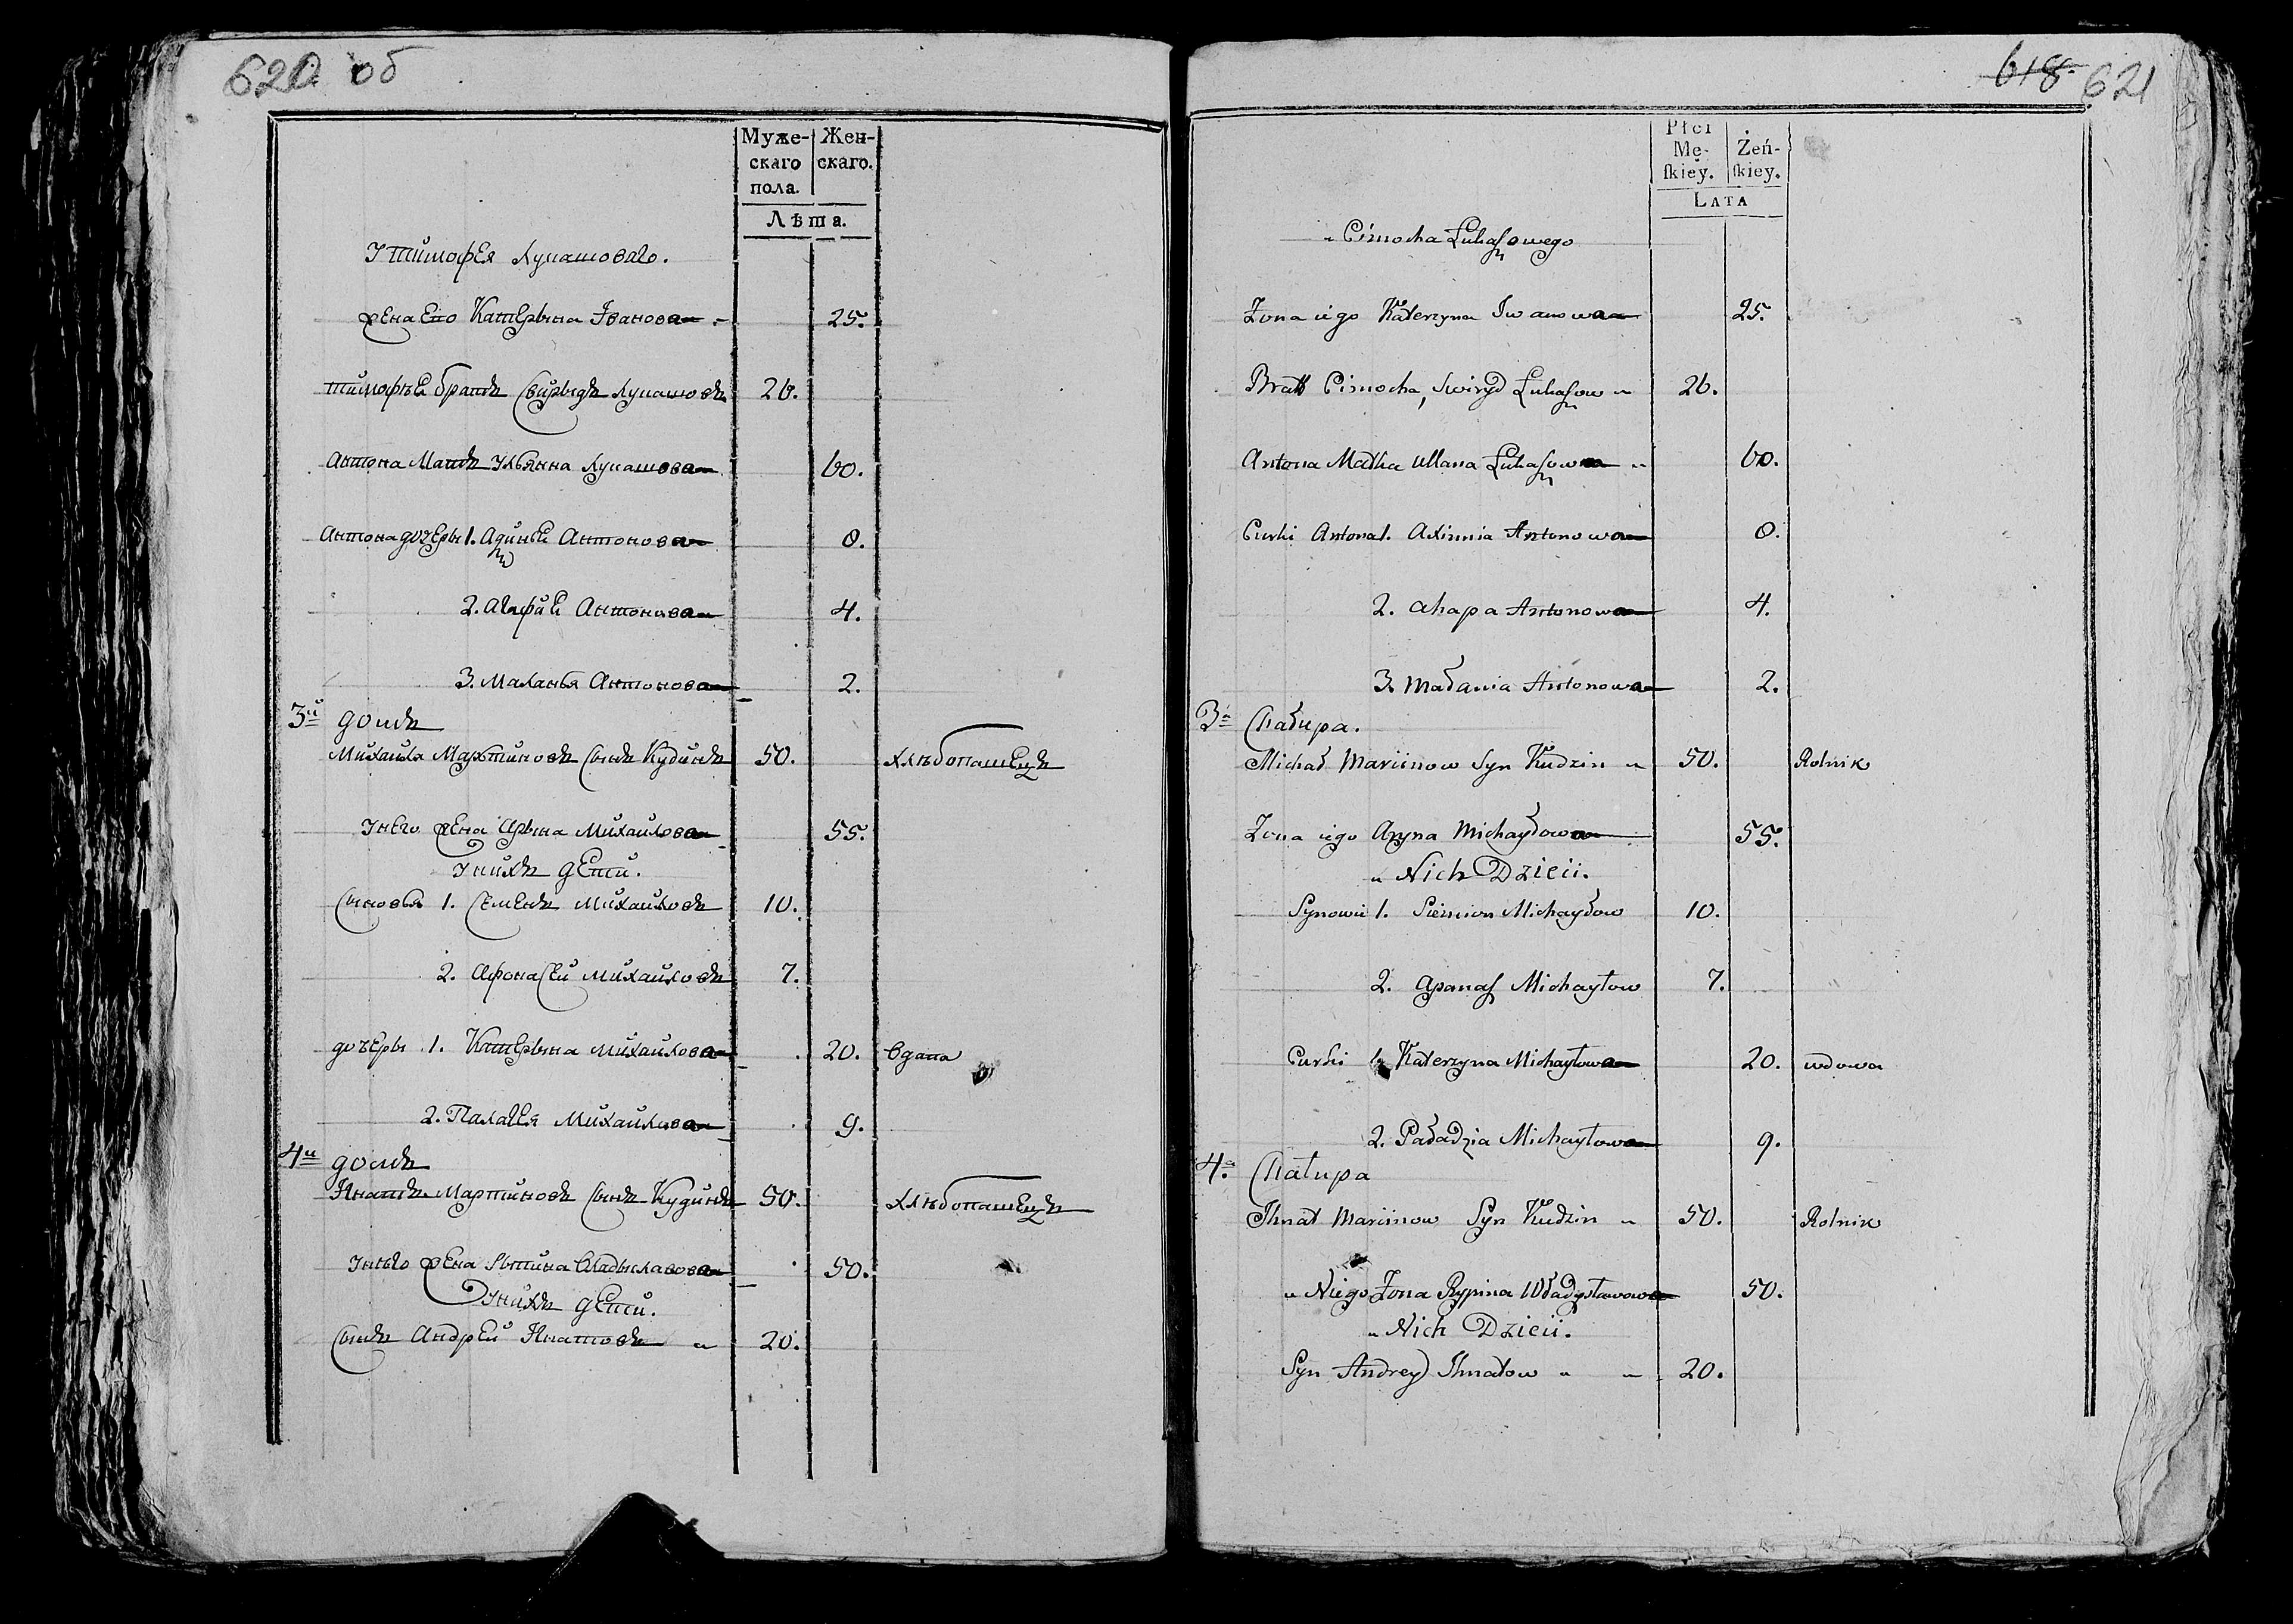 620 об
Муже-
скаго
пола.
Жен-
скаго.
Лѣта.
У тимофея Лукашоваго.
жена Его Катерына Іванова 25.
тимофѣе братъ Свирыдъ Лукашовъ 26.
Антона Матъ Ульянна Лукашова 60.
Антона дочеры 1. Аѯинья Антонова 8.
2. Агафия Антонова 4.
3. Маланья Антонова 2.
3й домъ
Михайла Мартиновъ Сынъ Кудинъ 50. хлѣбопашецъ
У него жена Арына Михайлова 55.
У нихъ дети.
Сыновья 1. Семенъ Михайловъ 10.
2. Афонасей Михайловъ 7.
дочеры 1. Катерына Михайлова 20. вдова
2. Палагея Михайлова 9.
4й домъ
Игнатъ Мартиновъ Сынъ Кудинъ 50. хлѣбопашецъ
У него жена Владыславова 50.
У нихъ дети.
Сынъ Андрей Игнатовъ 20.
618. 621
Płci
Mę-
ſkiey.
Żeń-
ſkiey.
LATA
u Cimocha Łukaszowego
Zona iego Katerzyna Iwanowa 25.
Bratt Cimocha, Swiryd Łukaszow 26.
Antona Matka Ullana Łukaszowa 60.
Curki Antona 1. Axinnia Antonowa 8.
2. Ahapa Antonowa 4.
3. Małania Antonowa 2.
3a Chałupa.
Michał Marcinow Syn Kudzin 50. Rolnik
Zona iego Aryna Michayłowa 55.
u Nich Dzieci.
Synowie 1. Siemion Michayłow 10.
2. Apanas Michayłow 7.
Curki 1. Katerzyna Michayłowa 20. wdowa
2. Paładzia Michayłowa 9.
4a Chałupa
Ihnat Marcinow Syn Kudzin 50. Rolnik
u Niego Zona Rypina Władysławowa 50.
u Nich Dzieci.
Syn Andrey Ihnatow 20.